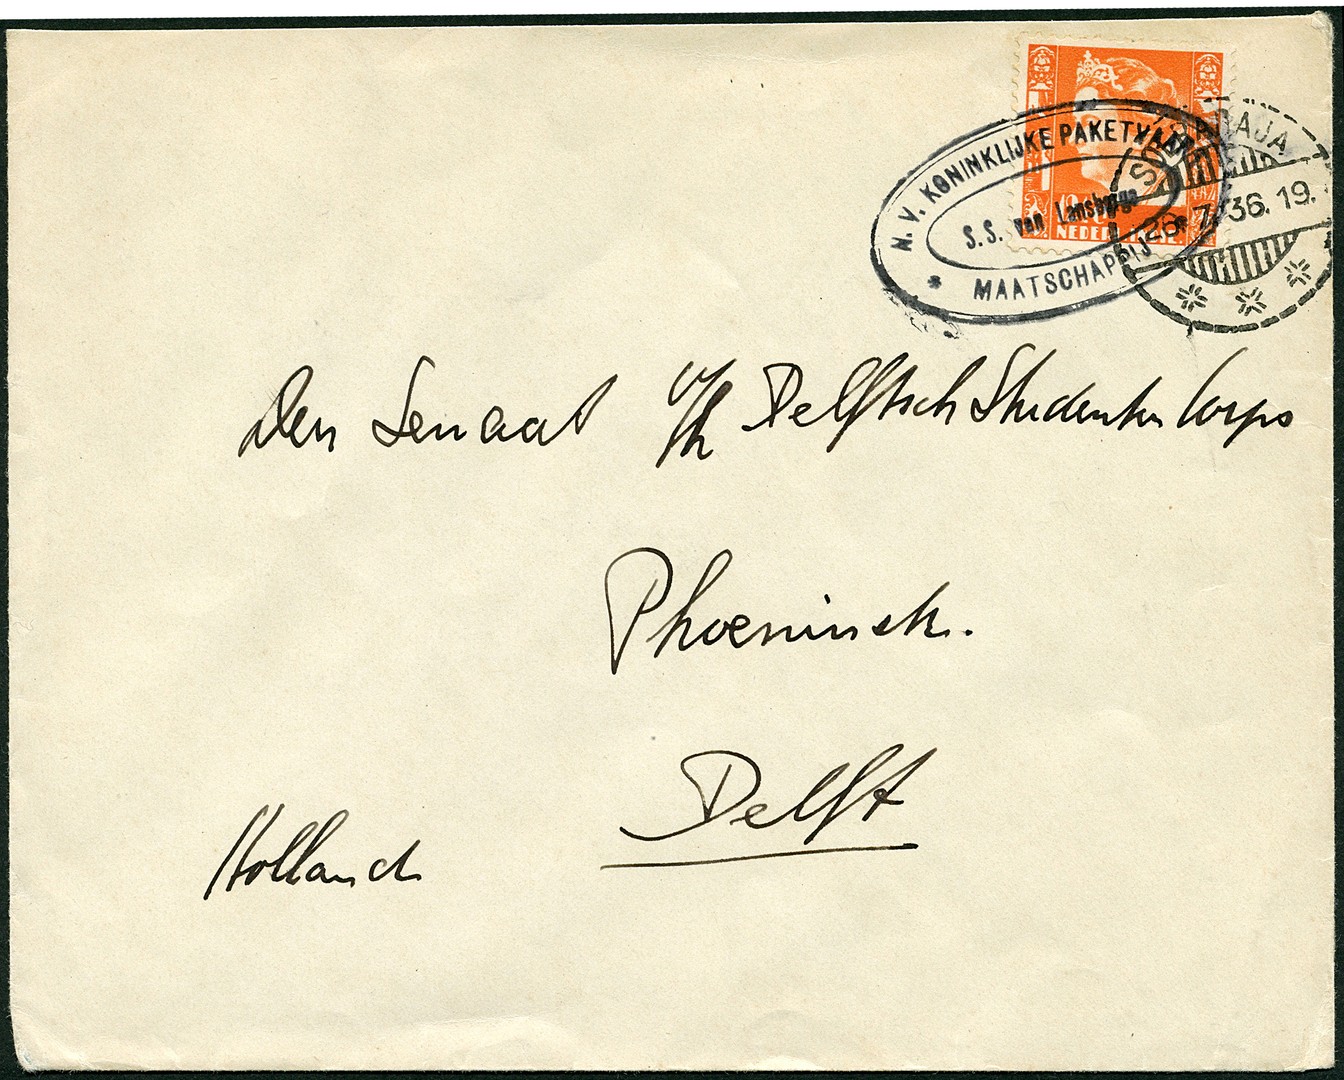 N.V. KONINKLIJKE PAKETVAART
S.S. van Lansberge
MAATSCHAPPIJ
26. 7. 36. 19.
NEDERL. INDIË.
Den Senaat v/h Delftsch Studenten Corps
Phoenixstr.
Delft
Holland